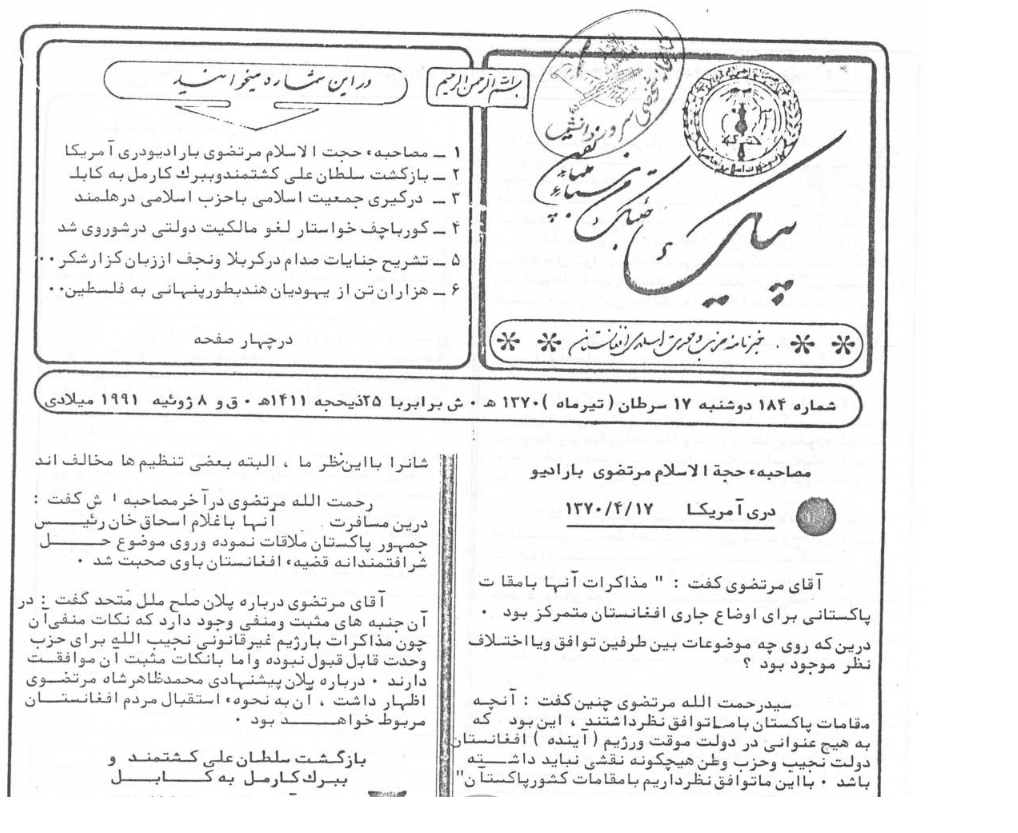 بسم الله الرحمن الرحیم
پیام
خبرنامه حزب وحدت اسلامی افغانستان
در این شماره میخوانید
۱ ــ مصاحبهء حجت الاسلام مرتضوی با رادیودری آمریکا
۲ ــ بازگشت سلطان علی کشتمندوببرك کارمل به کابلـ
۳ ــ درگیری جمعیت اسلامی باحزب اسلامی درهلمند
۴ ــ گورباچف خواستار لغو مالکیت دولتی درشوروی شد
۵ ــ تشریح جنایات صدام درکربلا ونجف اززبان گزارشگر۰۰
۶ ــ هزاران تن از یهودیان هندبطورپنهانی به فلسطین۰۰
درچهار صفحه
شماره ۱۸۴ دوشنبه ۱۷ سرطان ( تیرماه ) ۱۳۷۰ هـ ۰ ش برابربا ۲۵ذیحجه ۱۴۱۱هـ ۰ ق و ۸ ژوئیه ۱۹۹۱ میلادی
مصاحبهء حجة الاسلام مرتضوی بارادیو
دری آمریکا ۱۳۷۰/۴/۱۷
آقای مرتضوی گفت : " مذاکرات آنها بامقا ت
پاکستانی برای اوضاع جاری افغانستان متمرکز بود ۰
درین که روی چه موضوعات بین طرفین توافق ویا اختلاف
نظر موجود بود ؟
سیدرحمت الله مرتضوی چنین گفت : آنچـه
مقامات پاکستان بامـاتوافق نظرداشتند ، این بود که
به هیچ عنوانی در دولت موقت ورژیم ( آینده ) افغانستان
دولت نجیب وحزب وطن هیچگونه نقشی نباید داشـــته
باشد ۰ بااین ماتوافق نظرداریم بامقامات کشورپاکستان"
شانرا بااین نظر ما ، البته بعضی تنظیم ها مخالف اند
رحمت الله مرتضوی درآخرمصاحبه اش گفت :
درین مسافرت آنها باغلام اسحاق خان رئیــــس
جمهور پاکستان ملاقات نموده وروی موضوع حــــل
شرافتمندانه قضیهء افغانستان باوی صحبت شد ۰
آقای مرتضوی درباره پلان صلح ملل متحد گفت : در
آن جنبه های مثبت ومنفی وجود دارد که نکات منفی آن
چون مذاکرات بارژیم غیرقانونی نجیب الله برای حزب
وحدت قابل قبول نبوده واما بانکات مثبت آن موافقـت
دارند ۰ درباره پلان پیشنهادی محمدظاهرشاه مرتضـوی
اظهار داشت ، آن به نحوهء استقبال مردم افغانستـــان
مربوط خواهـــــد بود ۰
بازگشت سلطان علی کشتمند و
ببرك کارمل به کـــابـــل